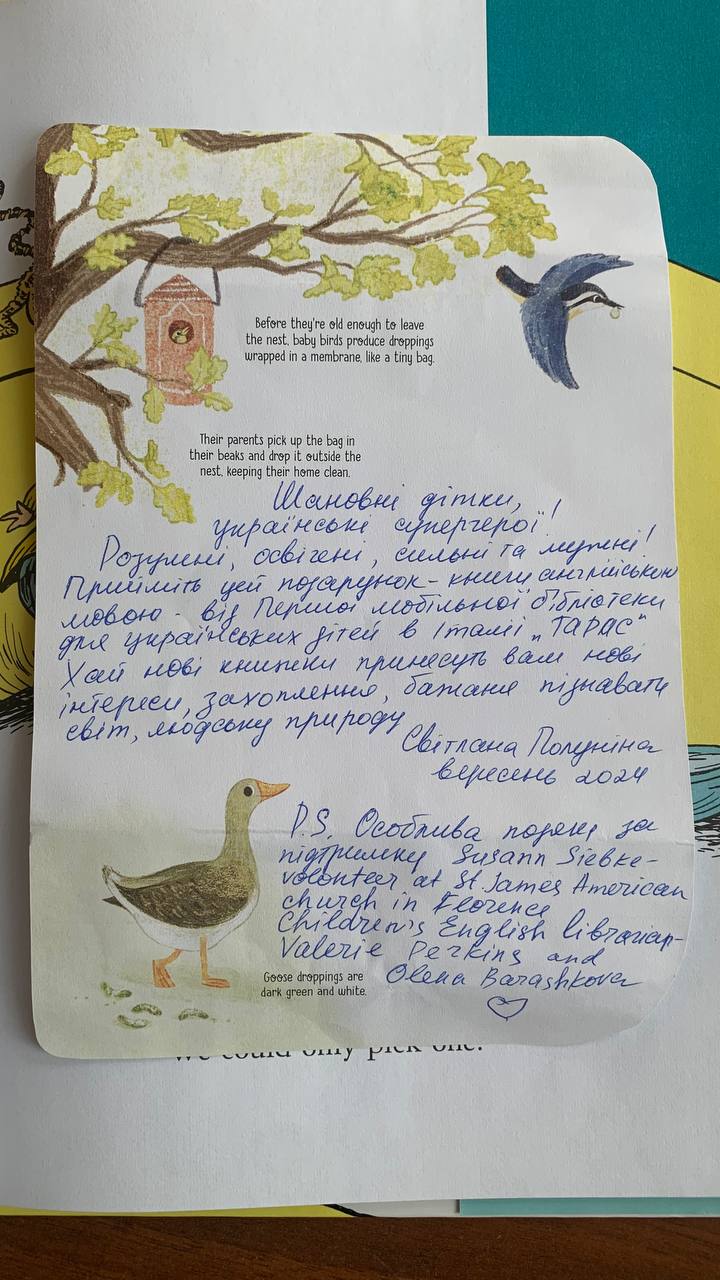 Before they're old enough to leave
the nest, baby birds produce droppings
wrapped in a membrane, like a tiny bag.
Their parents pick up the bag in
their beaks and drop it outside the
nest, keeping their home clean.
Шановні дітки,
українські супергерої!
Розумні, освічені, сильні та мужні!
Прийміть цей подарунок - книги англійською
мовою - від Першої мобільної бібліотеки
для українських дітей в Італії „ТАРАС"
Хай нові книжки принесуть вам нові
інтереси, захоплення, бажання пізнавати
світ, людську природу
Світлана Полуніна
вересень 2024
P.S. Особлива подяка за
підтримку Susann Siebke-
volonteer at St. James American
church in Florence
Children's English librarian-
Valerie Perkins and
Olena Barashkova
Goose droppings are
dark green and white.
we could only pick one.